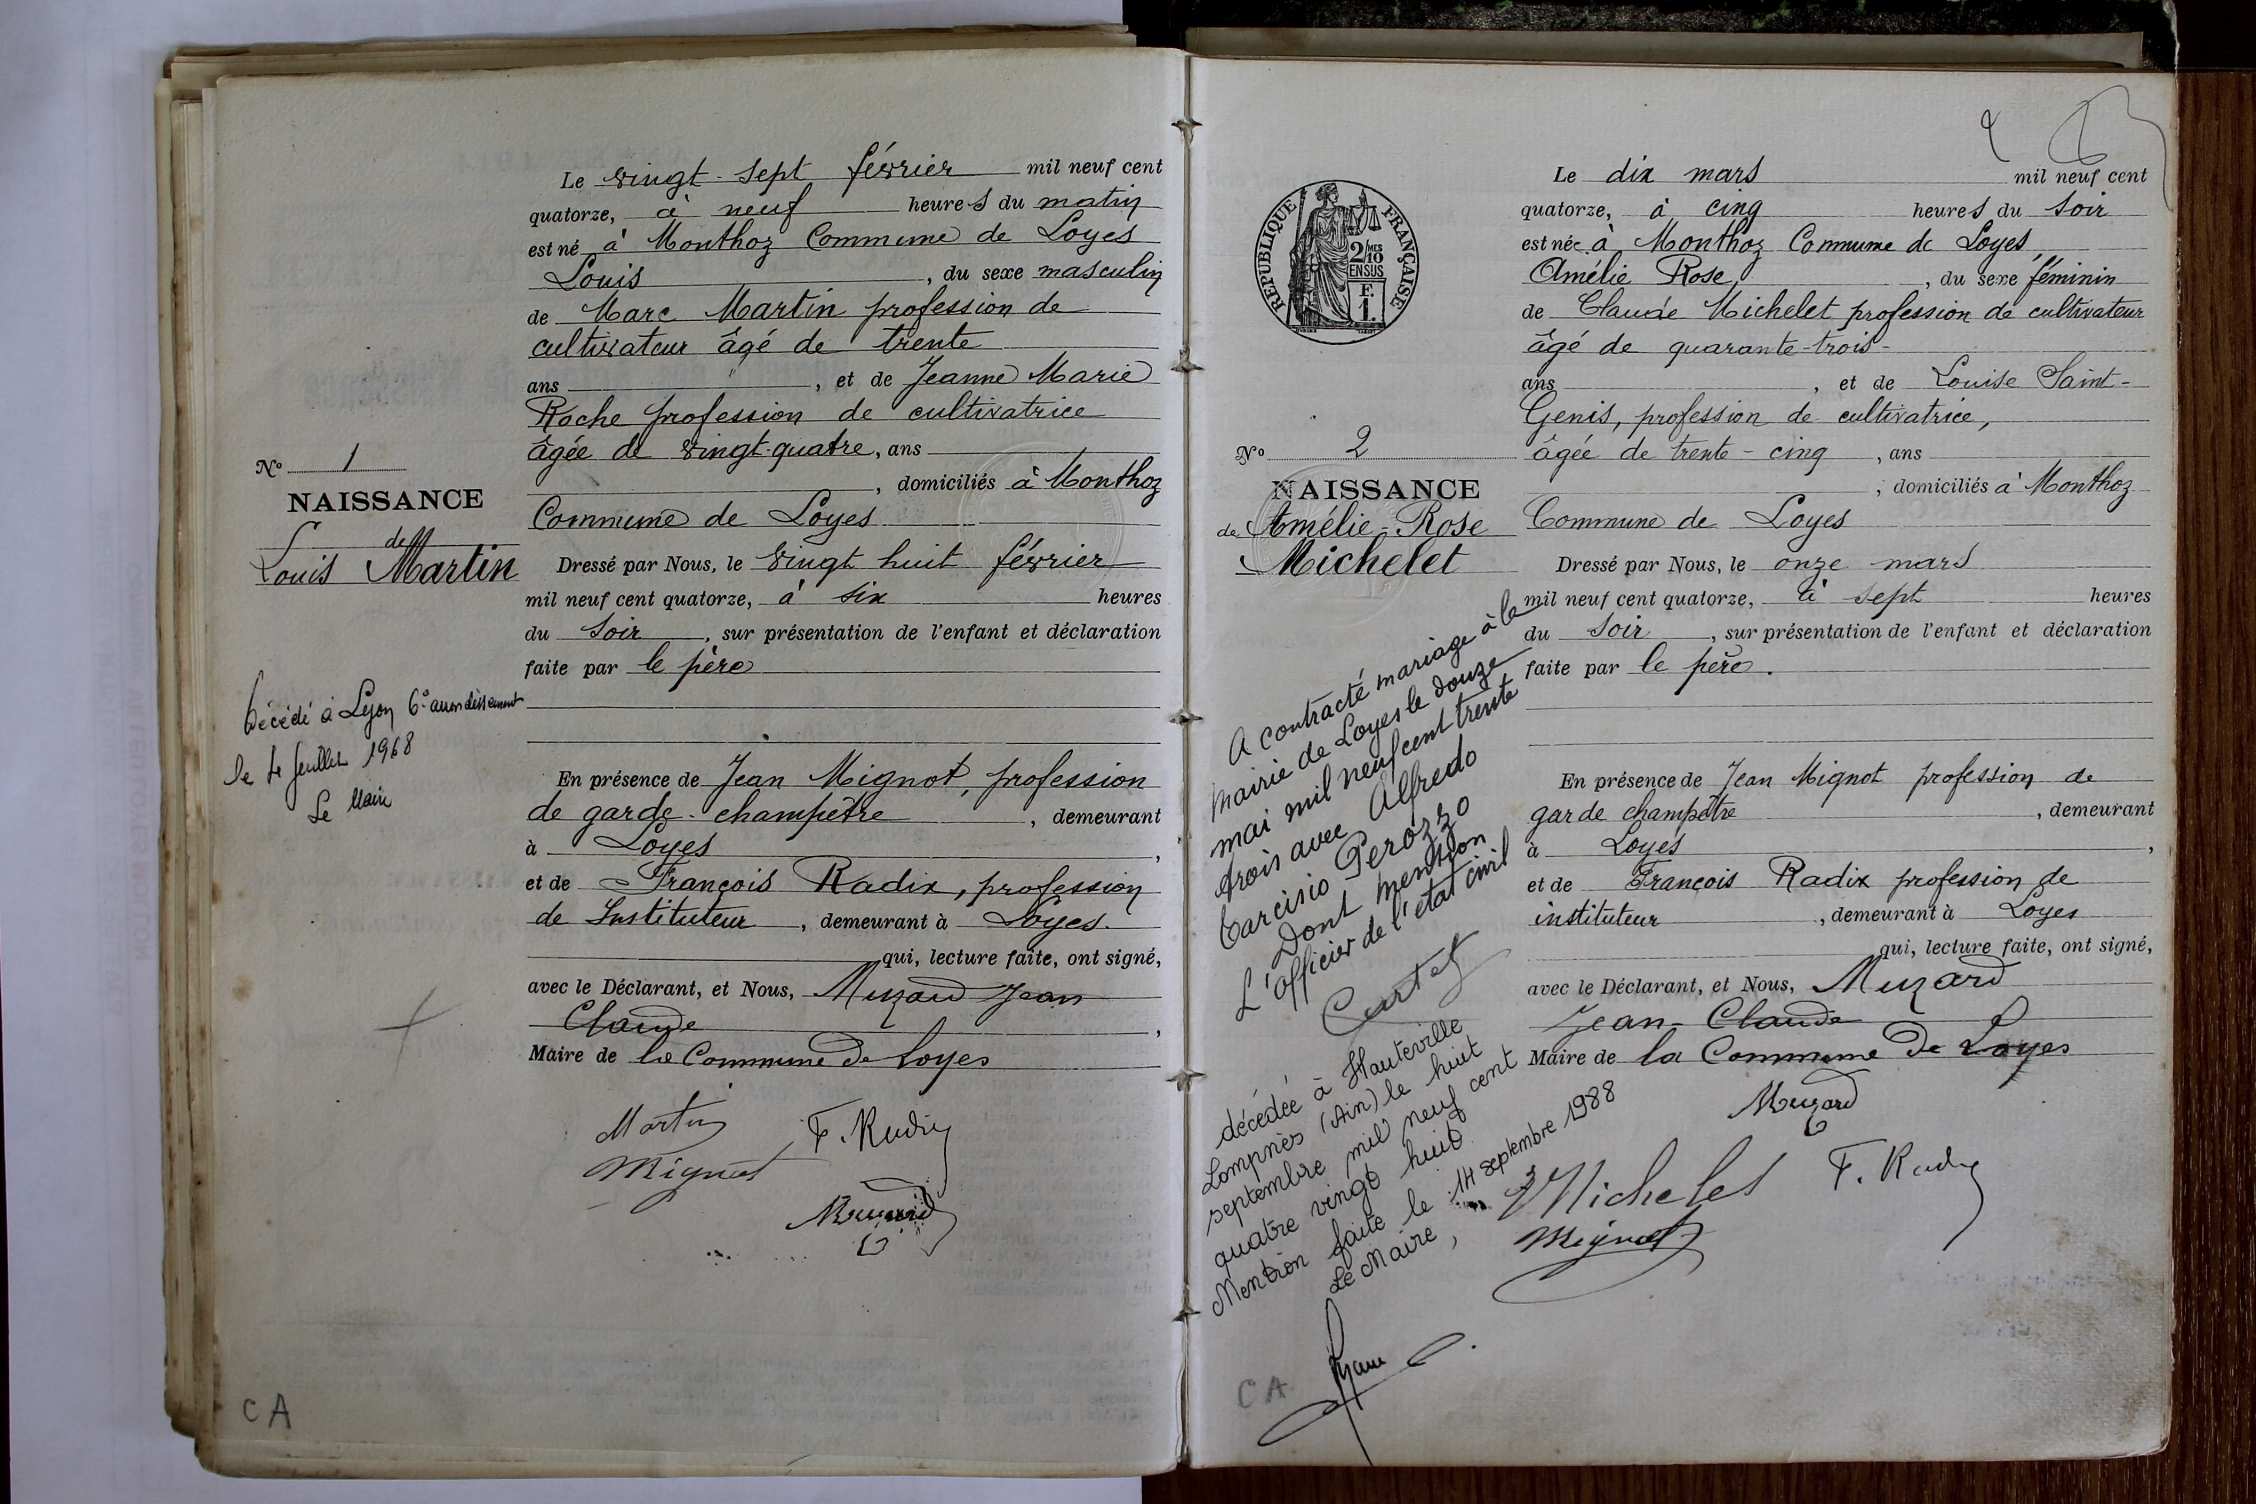 Le vingt-sept février mil neuf cent
quatorze, à neuf heures du matin
est né à Monthoz Commune de Loyes
Louis, du sexe masculin
de Marc Martin profession de
cultivateur âgé de trente
ans, et de Jeanne Marie
Roche profession de cultivatrice
âgée de vingt-quatre, ans
, domiciliés à Monthoz
Commune de Loyes
Dressé par Nous, le vingt huit février
mil neuf cent quatorze, à six heures
du soir, sur présentation de l'enfant et déclaration
faite par le père
En présence de Jean Mignot, profession
de garde-champêtre, demeurant
à Loyes,
et de François Radix, profession
de Instituteur, demeurant à Loyes.
qui, lecture faite, ont signé,
avec le Déclarant, et Nous, Muzard Jean
Claude,
Maire de la Commune de Loyes
Martin
F. Radix
Mignot
Muzard
N° 1
NAISSANCE
de
Louis Martin
Décédé à Lyon 6e arrondissement
le 4 Juillet 1968
Le Maire
CA
RÉPUBLIQUE FRANÇAISE
2/10 MES
EN SUS
F.
1.
Le dix mars mil neuf cent
quatorze, à cinq heures du soir
est née à Monthoz Commune de Loyes
Amélie Rose, du sexe féminin
de Claude Michelet profession de cultivateur
âgé de quarante-trois-
ans, et de Louise Saint-
Genis, profession de cultivatrice,
âgée de trente-cinq, ans
, domiciliés à Monthoz
Commune de Loyes
Dressé par Nous, le onze mars
mil neuf cent quatorze, à sept heures
du soir, sur présentation de l'enfant et déclaration
faite par le père.
En présence de Jean Mignot profession de
garde champêtre, demeurant
à Loyes,
et de François Radix profession de
instituteur, demeurant à Loyes
qui, lecture faite, ont signé,
avec le Déclarant, et Nous, Muzard
Jean-Claude
Maire de la Commune de Loyes
Muzard
Michelet
F. Radix
Mignot
N° 2
NAISSANCE
de Amélie-Rose
Michelet
A contracté mariage à la
mairie de Loyes le douze
mai mil neuf cent trente
trois avec Alfredo
Tarcisio Perozzo
Dont mention
L'officier de l'état civil
décédée à Hauteville
Lompnès (Ain) le huit
septembre mil neuf cent
quatre vingt huit.
Mention faite le 14 septembre 1988
Le Maire,
CA